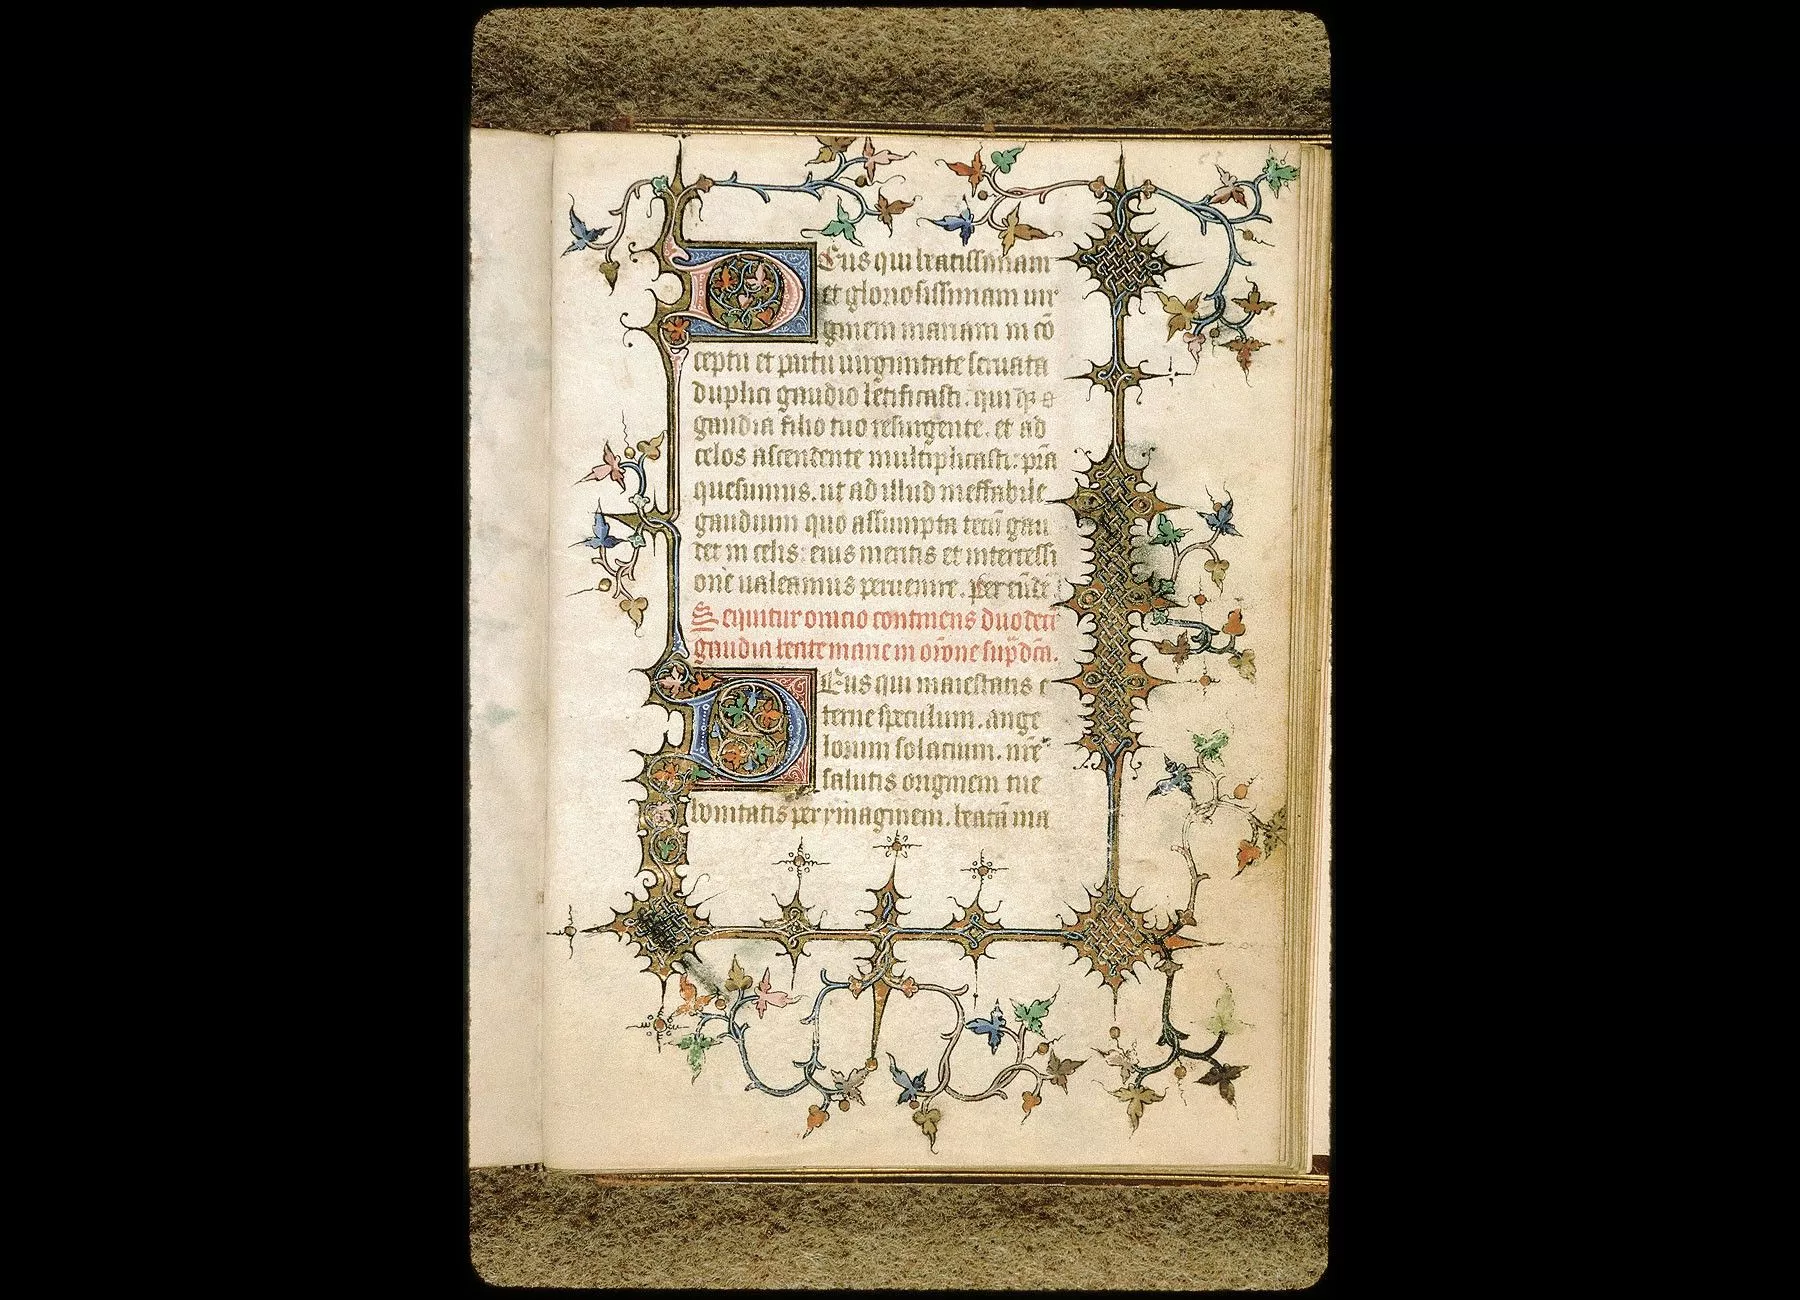 Deus qui beatissimam
et gloriosissimam uir
ginem mariam in cō
ceptu et partu uirginitate seruata
duplici gaudio letificasti. qui
gaudia filio tuo resurgente. et ad
celos ascendente multiplicasti: pr̄a
quesumus. ut ad illud ineffabile
gaudium quo assumpta tecū gau
det in celis: eius meritis et intercessi
one ualeamus peruenire. Per eūdē
Sequitur oratio continens duodecī
gaudia beate marie in orōne sup̄dc̄a.
Deus qui maiestatis e
terne speculum. ange
lorum solatium. nr̄e
salutis originem tue
bonitatis per ymaginem. beatā ma